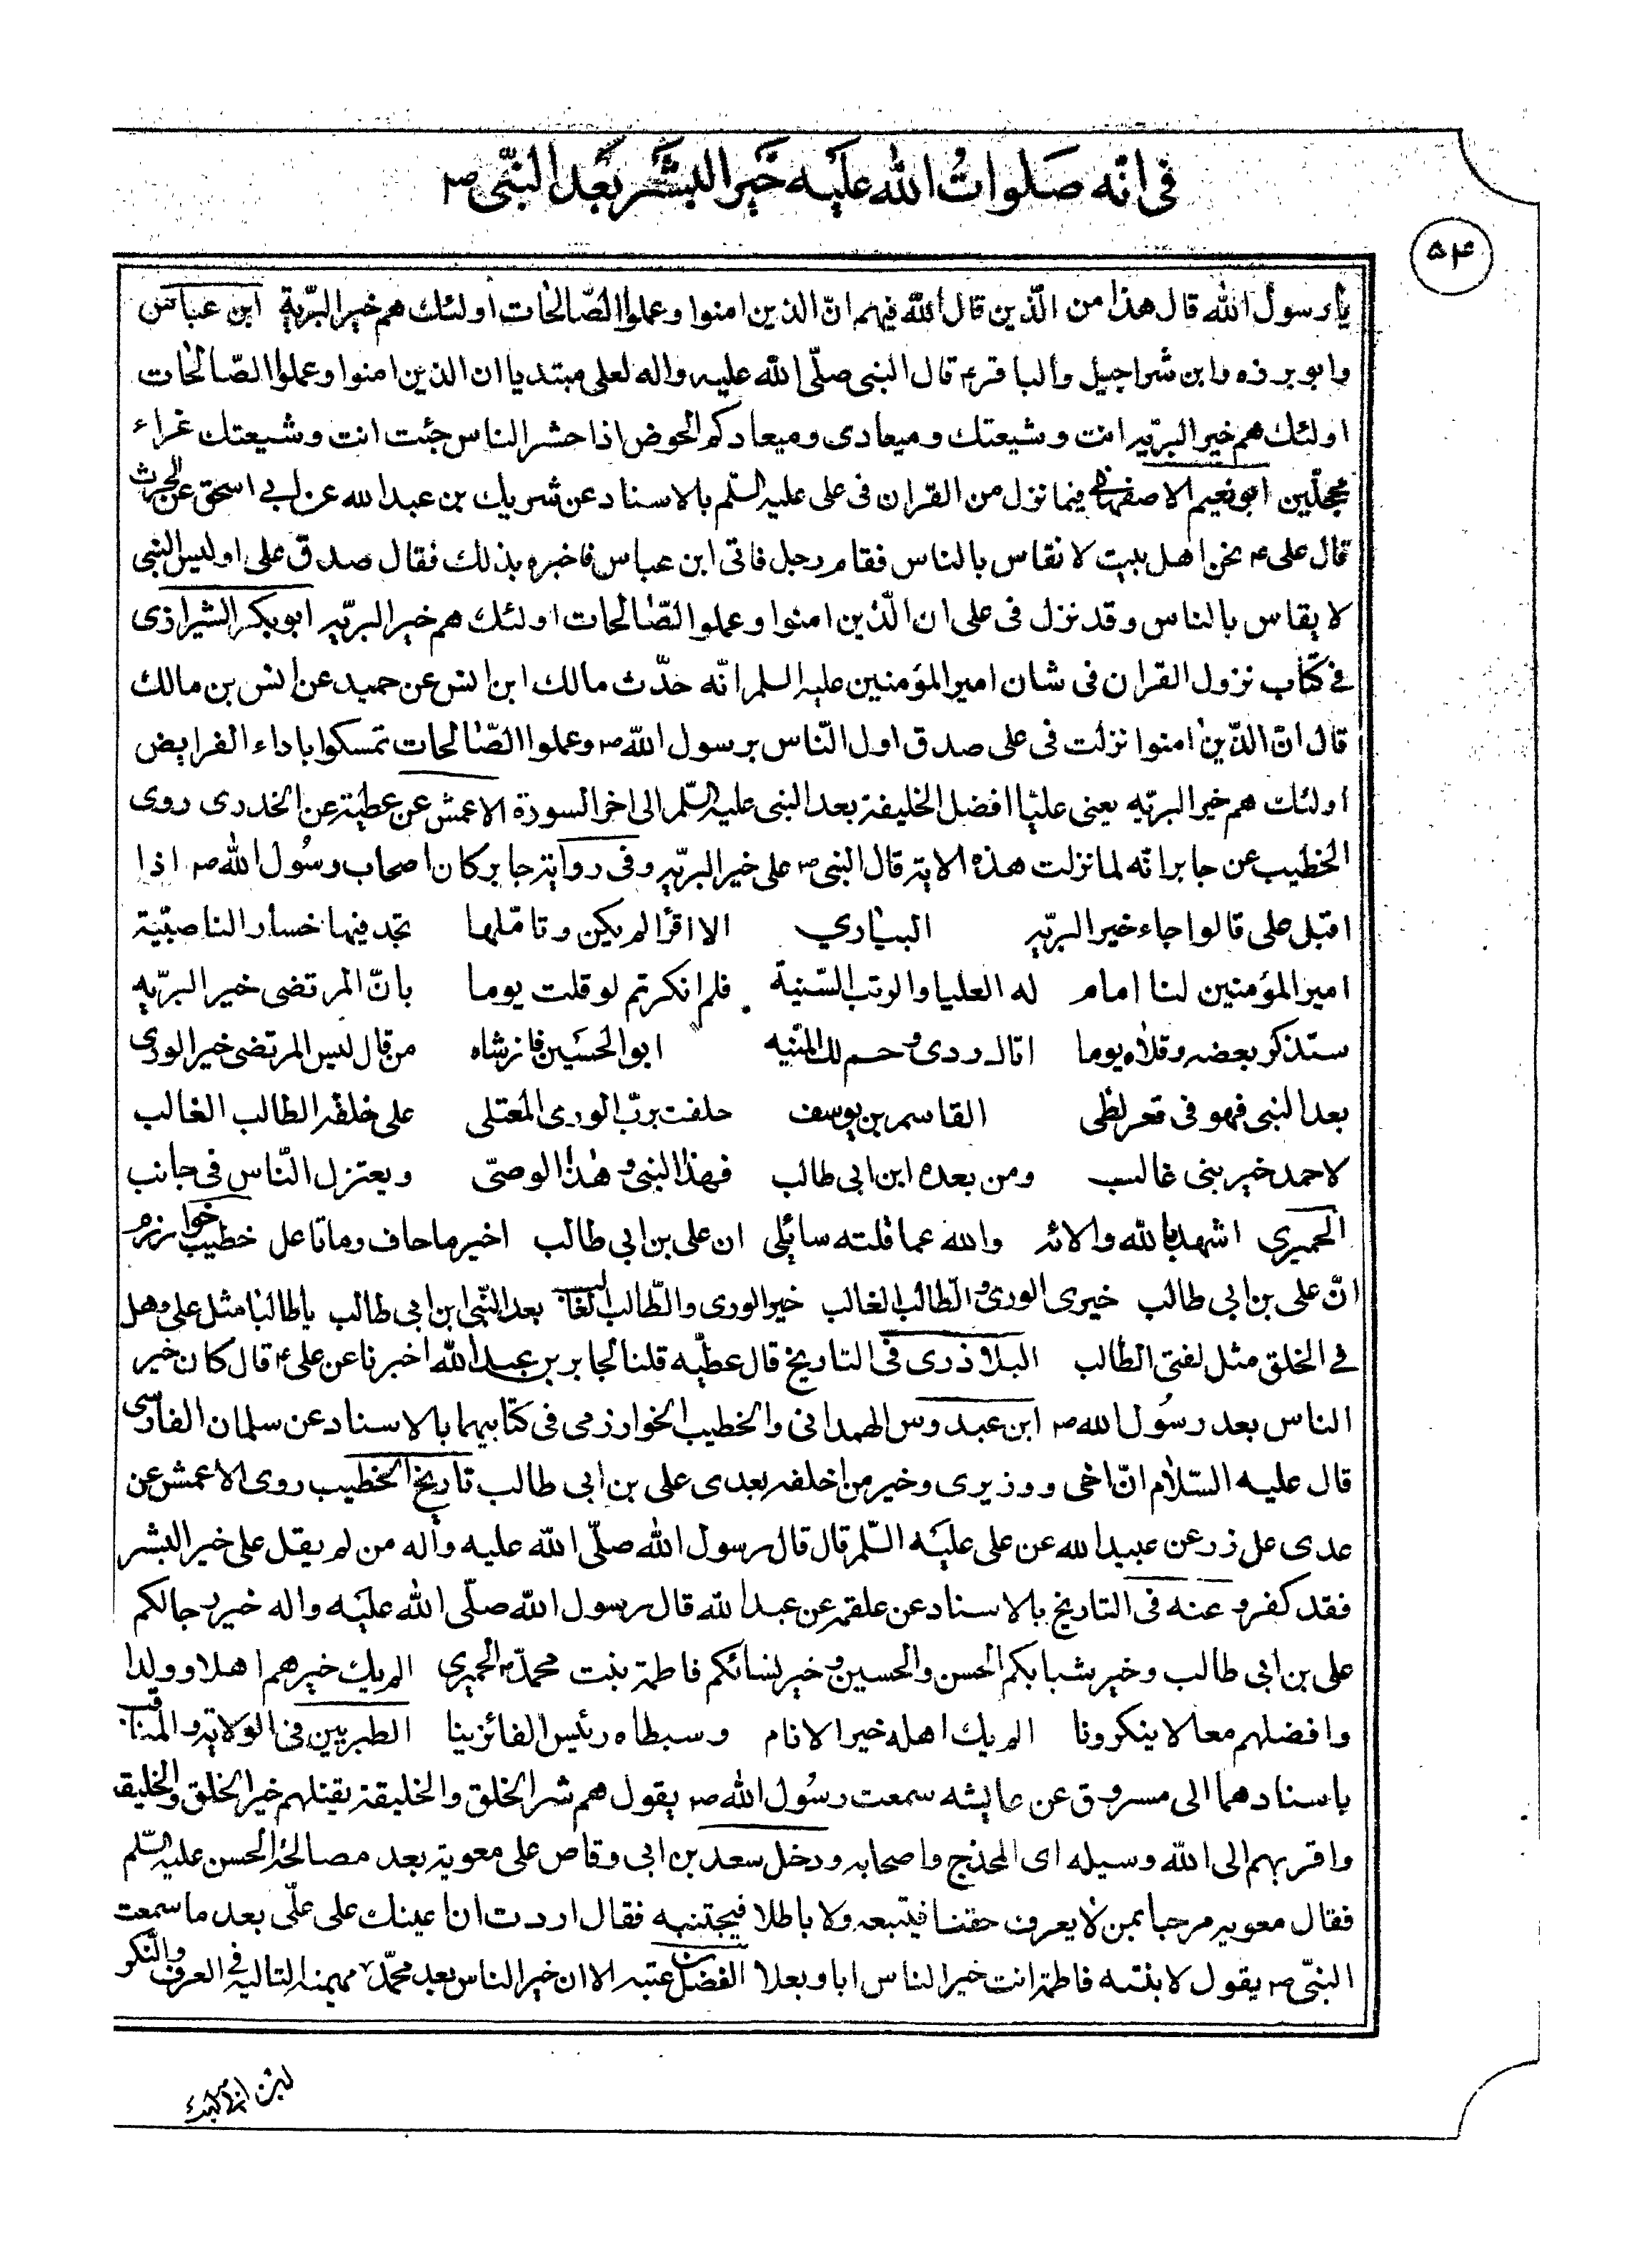 فی انّه صَلواتُ الله علَیه خَیر البشَر بَعد النبّی ص
۵۴
یا رسول الله قال هذا من الّذین قال اللّٰه فیهم انّ الذین امنوا وعملوا الصّالحات اولئك هم خیر البرّیة ابن عباس
وابو برزه وابن شراحیل والباقر ع قال النبی صلّی اللّٰه علیه واله لعلی مبتدیا ان الذین امنوا وعملوا الصّالحات
اولئك هم خیر البریّه انت وشیعتك ومیعادی ومیعادکم الحوض اذا حشر الناس جئت انت وشیعتك غراء
محجّلین ابو نعیم الاصفهانی فیما نزل من القران فی علی علیه السّلم بالاسناد عن شریك بن عبد الله عن ابی اسحق عن الحرث
قال علی ع نحن اهل بیت لا نقاس بالناس فقام رجل فاتی ابن عباس فاخبره بذلك فقال صدق علی اولیس النبی
لا یقاس بالناس وقد نزل فی علی ان الّذین امنوا وعملوا الصّالحات اولئك هم خیر البریّه ابو بکر الشیرازی
فی کتاب نزول القران فی شان امیر المؤمنین علیه السلم انّه حدّث مالك ابن انس عن حمید عن انس بن مالك
قال انّ الذّین امنوا نزلت فی علی صدق اول النّاس برسول اللّٰه ص وعملوا الصّالحات تمسکوا باداء الفرایض
اولئك هم خیر البریّه یعنی علیّا افضل الخلیفة بعد النبی علیه السّلم الی اخر السورة الاعمش عن عطیة عن الخدری روی
الخطیب عن جابر انّه لما نزلت هذه الایة قال النبی ص علی خیر البریّه وفی روایة جابر کان اصحاب رسُول اللّٰه ص اذا
اقبل علی قالوا جاء خیر البریّه البیاری الا اقرأ لم یکن وتامّلها تجد فیها خسار الناصبّیة
امیر المؤمنین لنا امام له العلیا والرتب السّنیة فلم انکرتم لو قلت یوما بانّ المرتضی خیر البریّه
ستذکر بعضه وقلاه یوما اتاك ردی وحم لك المنیّه ابو الحسَین فانزشاه من قال لیس المرتضی خیر الوری
بعد النبی فهو فی قعر لظی القاسم بن یوسف حلفت بربّ الوری المعتلی علی خلقه الطالب الغالب
لاحمد خیر بنی غالب ومن بعده ابن ابی طالب فهذا النبی وهٰذا الوصیّ ویعتزل النّاس فی جانب
الحمیری اشهد بالله والائه والله عما قلته سائلی ان علی بن ابی طالب اخیر ما حاف وماناعل خطیب خوارزم
انّ علی بن ابی طالب خیری الوری والطّالب الغالب خیر الوری والطّالب الغالب بعد النبّی ابن ابی طالب یا طالبا مثل علی وهل
فی الخلق مثل لفتی الطالب البلاذری فی التاریخ قال عطیّه قلنا لجابر بن عبد اللّٰه اخبرنا عن علی ع قال کان خیر
الناس بعد رسُول الله ص ابن عبدوس الهمدانی والخطیب الخوارزمی فی کتابیهما بالاسناد عن سلمان الفارسی
قال علیه السّلام انّ اخی ووزیری وخیر من اخلفه بعدی علی بن ابی طالب تاریخ الخطیب روی الاعمش عن
عدی عل زر عن عبید الله عن علی علیَه السّلم قال قال رسول اللّٰه صلّی اللّٰه علیه وآله من لم یقل علی خیر البشر
فقد کفر وعنه فی التاریخ بالاسناد عن علقمه عن عبد اللّٰه قال رسول اللّٰه صلّی اللّٰه علیَه واله خیر رجالکم
علی بن ابی طالب وخیر شبابکم الحسن والحسین وخیر نسائکم فاطمة بنت محمّد ص الحمیری الم یك خیرهم اهلا وولدا
وافضلهم معا لا ینکرونا الم یك اهله خیر الانام وسبطاه رئیس الفائزینا الطبریین فی الولایة والمناقب
باسنادهما الی مسروق عن عایشه سمعت رسُول اللّٰه ص یقول هم شر الخلق والخلیقة یقتلهم خیر الخلق والخلیقه
واقربهم الی اللّٰه وسیله ای المخدج واصحابه ودخل سعد بن ابی وقاص علی معویة بعد مصالحة الحسن علیه السّلم
فقال معویه مرحبا بمن لا یعرف حقنا فیتبعه ولا باطلا فیجتنبه فقال اردت ان اعینك علی علّی بعد ما سمعت
النبیّ ص یقول لابنته فاطمة انت خیر الناس ابا وبعلا الفضل بن عتبه الا ان خیر الناس بعد محمّد مهیمنه التالیه فی العرف والنکر